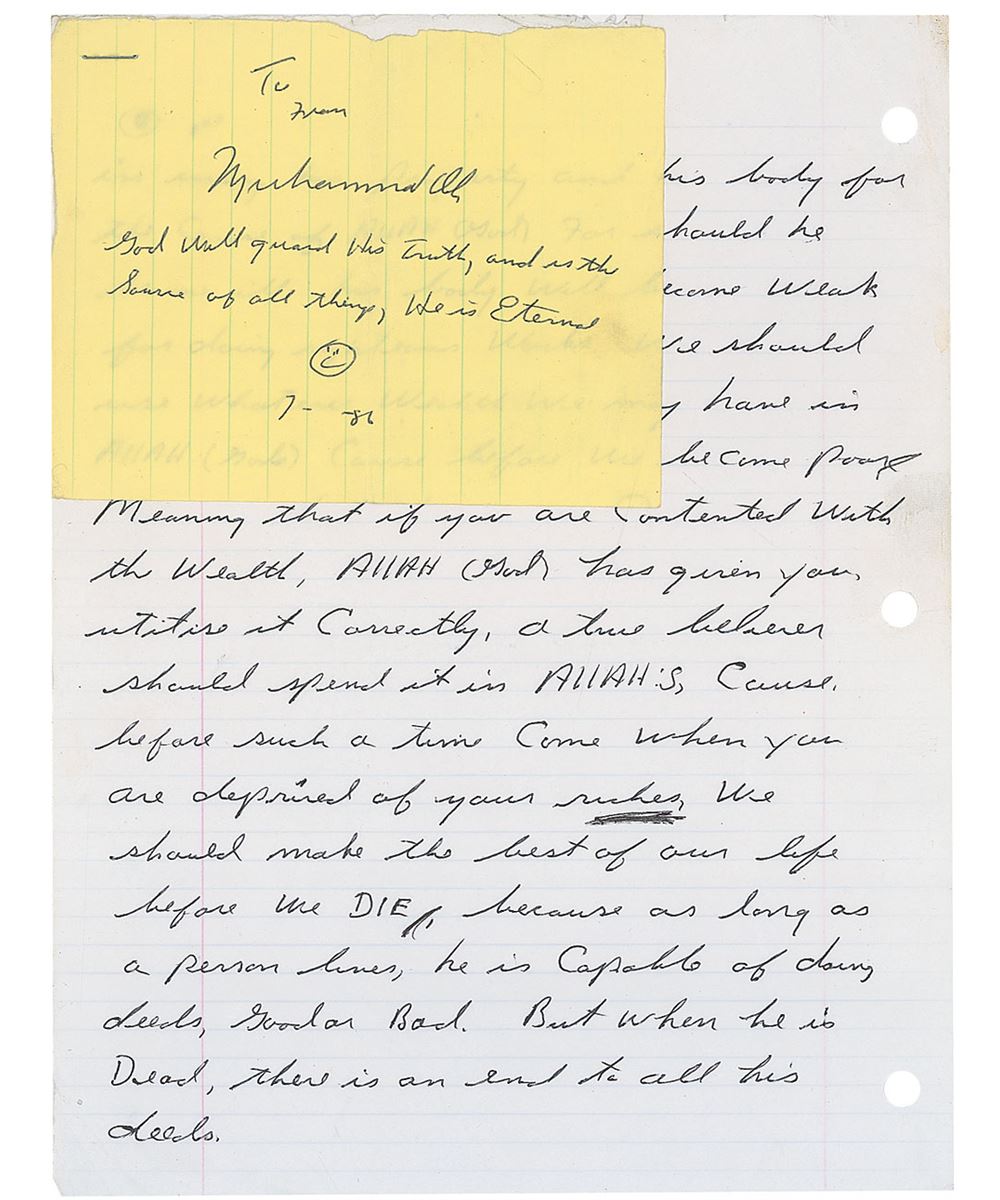 To
From
Muhammad Ali
God Will guard His Truth, and is the
Source of all things, He is Eternal
7- -86
his body for
hould he
ecome Weak
We should
y have in
become poor
Meaning that if you are Contented With
th Wealth, AllAH (God) has given you,
utitise it Correctly, a true believer
should spend it in AllAH'S, Cause.
before such a time Come when you
are deprived of your riches, We
should make the best of our life
before we DIE, because as long as
a person lives, he is Capable of doing
deeds, Good or Bad. But when he is
Dead, there is an end to all his
deeds.